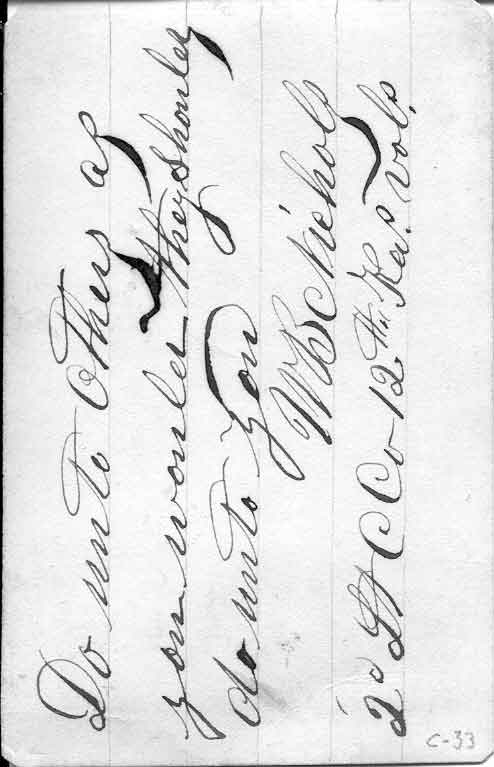 Do unto Others as
you would they should
do unto you
W B Nichols
2d Lt C Co 12th Kas. vols.
C-33